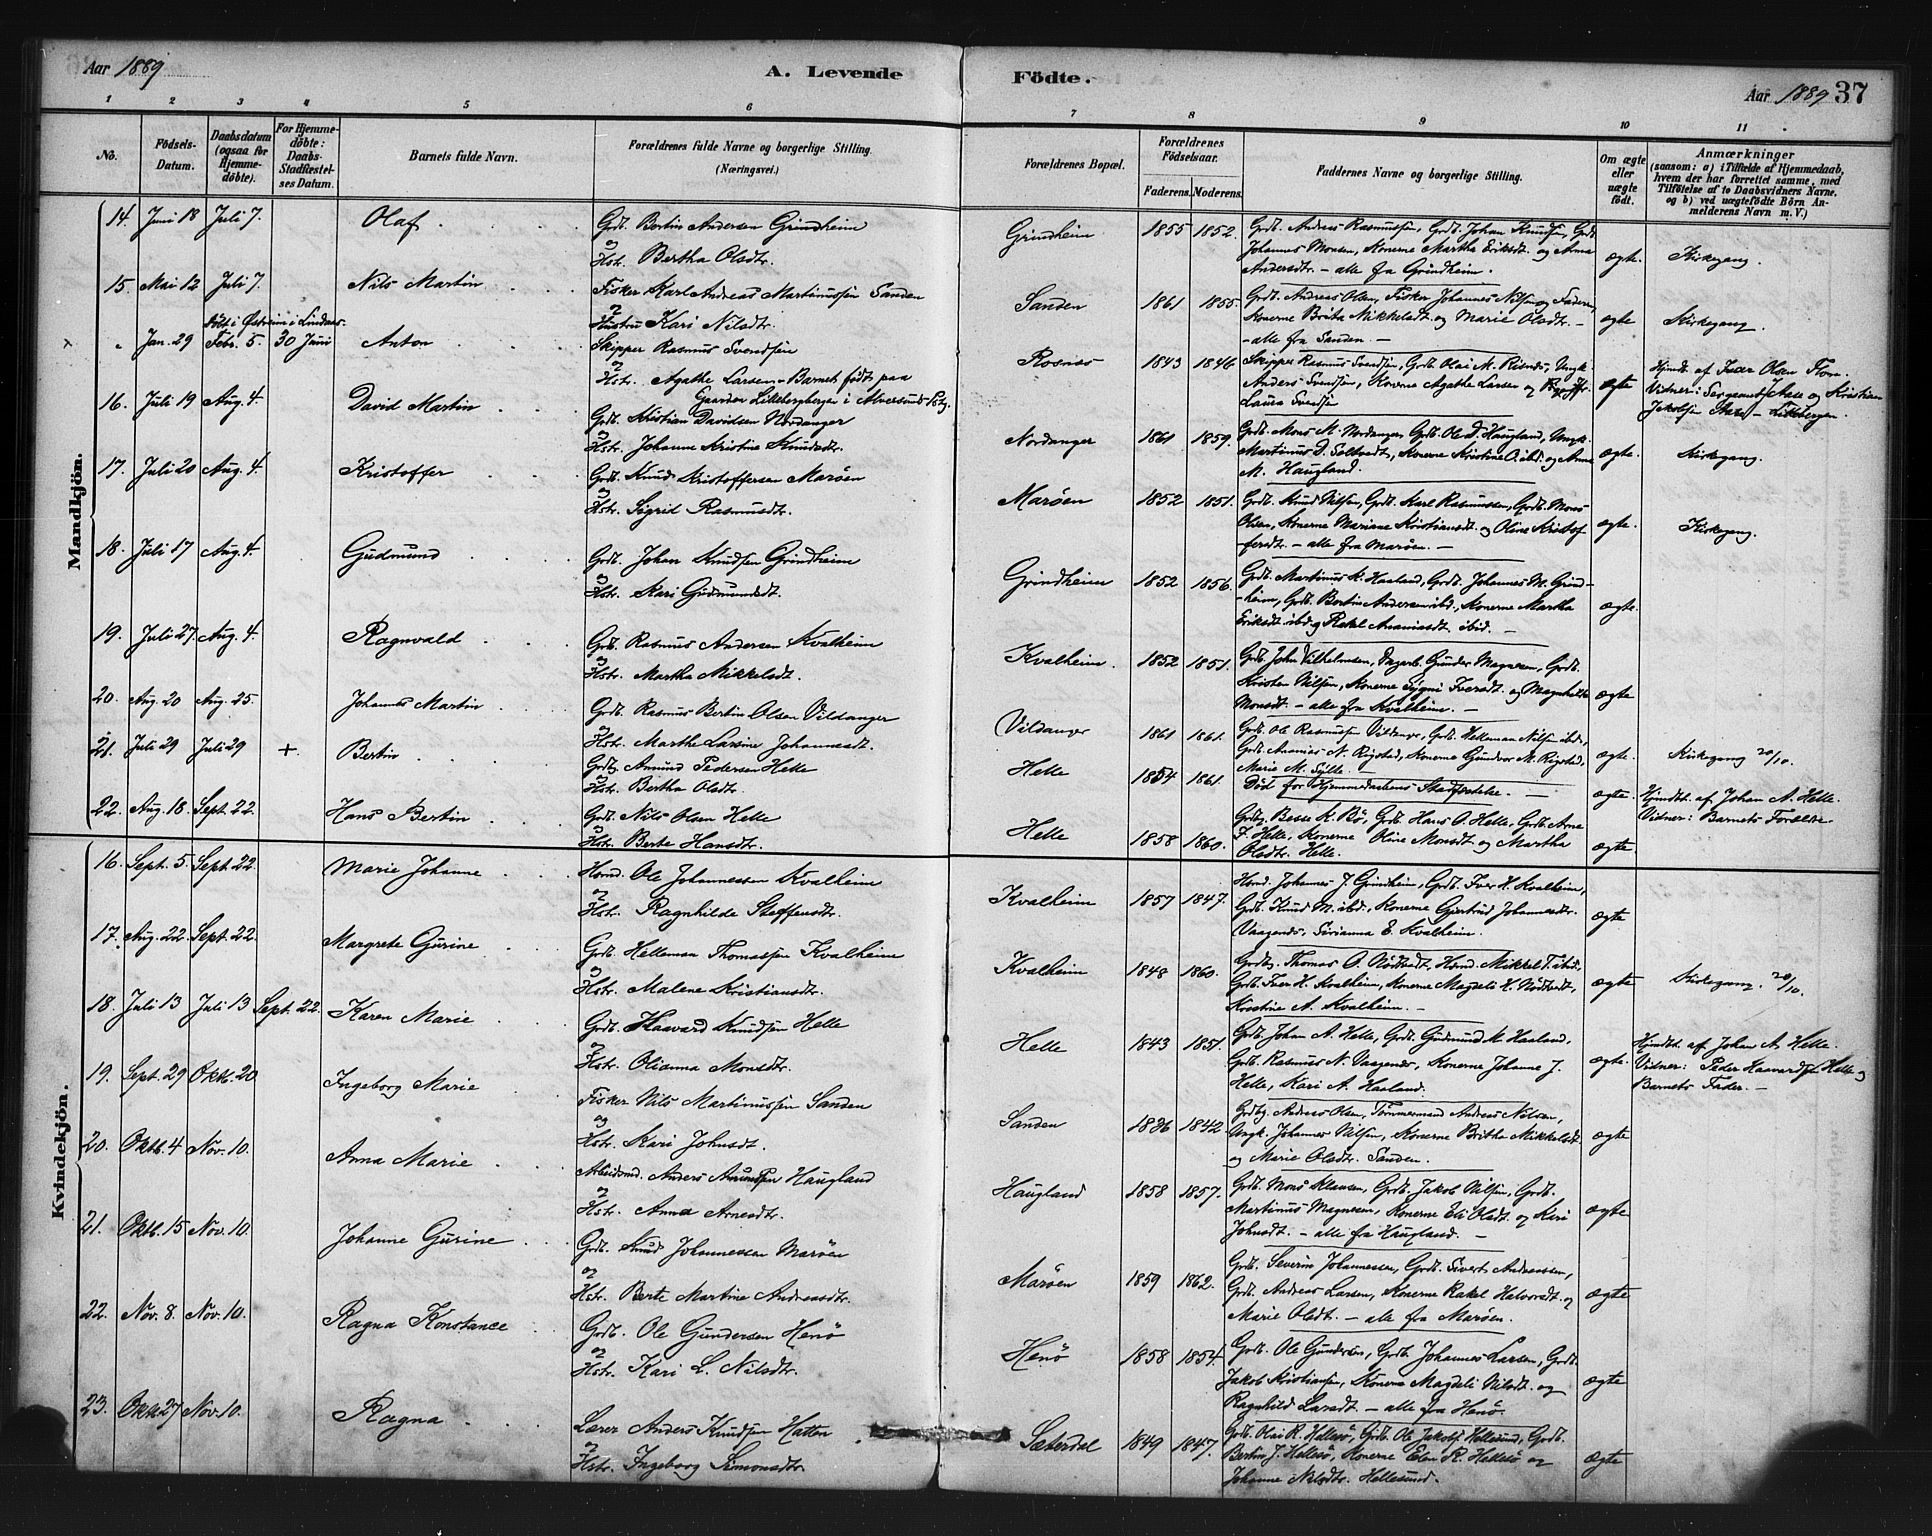 Aar 1889
A. Levende
Födte.
Aar 1889 37
1 2 3 4 5 6 7 8 9 10 11
No.
Födsels-Datum.
Daabsdatum (ogsaa for Hjemme-döbte).
For Hjemme-döbte: Daabs-Stadfæstel-ses Datum.
Barnets fulde Navn.
Forældrenes fulde Navne og borgerlige Stilling.
(Næringsvei.)
Forældrenes Bopæl.
Forældrenes Födselsaar.
Faderens. Moderens.
Faddernes Navne og borgerlige Stilling.
Om ægte eller uægte födt.
Anmærkninger
(saasom: a) i Tilfælde af Hjemmedaab,
hvem der har forrettet samme, med
Tilföielse af to Daabsvidners Navne,
og b) ved uægtefödte Börn An-
melderens Navn m. V.)
Mandkjön.
14. Juni 18 Juli 7. Olaf
Grdb. Bertin Andersen Grindheim
og
Hstr. Bertha Olsdtr.
Grindheim 1855 1852.
Grdb. Andreas Rasmussen, Grdb. Johan Knudsen, Grdb.
Johannes Monsen, Konerne Martha Eriksdt. og Anna
Andersdtr. – alle fra Grindheim.
ægte. Kirkegang.
15. Mai 12 Juli 7. Nils Martin
Fisker Karl Andreas Martinussen Sanden
og
Hustru Kari Nilsdtr.
Sanden 1861 1855.
Grdb. Andreas Olsen, Fisker Johannes Nilsen og Faderen,
Konerne Brita Mikkelsdt. og Marie Olsdtr. –
– alle fra Sanden. –
ægte Kirkegang.
Födt i Østreim i Lindaas.
" Jan. 29 Febr. 5. 30 Juni Anton
Skipper Rasmus Svendsen
og
Hstr. Agathe Larsen – Barnet født paa
Gaarden Lilletbergbergen i Alversund Pstg.
Rosnes 1843 1846
Skipper Rasmus Svendsen, Grdb. Olai M. Risnes, Ungk.
Anders Svendsen, Konerne Agathe Larsen og Pige
Laura Svendsen
ægte
Hjmdt. af Iver Olsen Flom.
Vidner: Sergeant Aase og Kristian
Jakobsen
16. Juli 19 Aug. 4. David Martin
Grdb. Kristian Davidsen Nordanger
og
Hstr. Johanne Kristine Knudsdtr.
Nordanger 1861 1859.
Grdb. Mons M. Nordanger, Grdb. Ole D. Haugland, Ungk.
Martinus D. Soltvedt, Konerne Kristine O. ibd. og Anna
M. Haugland.
ægte. Kirkegang.
17. Juli 20 Aug. 4. Kristoffer
Grdb. Knud Kristoffersen Marøen
og
Hstr. Sigrid Rasmusdt.
Marøen 1852 1851.
Grdb. Knud Nilsen, Grdb. Karl Rasmussen, Grdb. Mons
Olsen, Konerne Mariane Kristiansdt. og Oline Kristof-
fersdt. – alle fra Marøen. –
ægte. Kirkegang.
18. Juli 17 Aug. 4. Gudmund
Grdb. Johan Knudsen Grindheim
og
Hstr. Kari Gudmundsdt.
Grindheim 1852 1856.
Grdb. Martinus K. Haaland, Grdb. Johannes M. Grind-
heim, Grdb. Bertin Andersen ibd., Konerne Martha
Eriksdt. ibd. og Rakel Ananiasdt. ibid. –
ægte.
19. Juli 27. Aug. 4. Ragnvald
Grdb. Rasmus Andersen Kvalheim
og
Hstr. Martha Mikkelsdt.
Kvalheim. 1852 1851.
Grdb. John Vilhelmsen, Gunder Magnesen, Grdb.
Kristen Nilsen, Konerne Sygni Iversdt. og Magnhilde
Monsdt. – alle fra Kvalheim. –
ægte
20. Aug. 20 Aug. 25. Johannes Martin
Grdb. Rasmus Bertin Olsen Vildanger
og
Hstr. Marthe Larsine Johannesdt.
Vildanger 1861 1861.
Grdb. Ole Rasmussen Vildanger, Grdb. Helleman Nilsen ibd.,
Grdb. Ananias N. Rigstad, Konerne Gundvor M. Rigstad,
Marie M. Sylte. –
ægte. Kirkegang 20/10.
21. Juli 29 Juli 29 + Bertin
Grdbg. Amund Pedersen Helle
og
Hstr. Bertha Olsdt.
Helle 1854 1861.
Död för Hjemmedaabens Stadfæstelse. –
ægte.
Hjmdbt. af Johan A. Helle.
Vidner: Barnets Forældre
22. Aug. 18 Sept. 22. Hans Bertin
Grdb. Nils Olsen Helle
og
Hstr. Berte Hansdt.
Helle 1858 1860.
Grdbg. Besse K. Bø, Grdb. Hans O. Helle, Grdb. Arne
I. Helle, Konerne Oline Monsdt. og Martha
Olsdtr. Helle.
ægte.
Kvindekjön.
16. Sept. 5. Sept. 22. Marie Johanne
Hmd. Ole Johannessen Kvalheim
og
Hstr. Ragnhilde Steffensdtr.
Kvalheim 1857 1847.
Hmd. Johannes J. Grindheim, Grdb. Iver H. Kvalheim,
Grdb. Knud M. ibd., Konerne Gjertrud Johannesdtr.
Vaagenes, Sirianna E. Kvalheim.
ægte
17. Aug. 22. Sept. 22. Margrete Gurine
Grdb. Helleman Thomassen Kvalheim
og
Hstr. Malene Kristiansdt.
Kvalheim 1848 1860.
Grdbg. Thomas O. Nødtvedt, Hmd. Mikkel T. ibd.,
Grdb. Iver H. Kvalheim, Konerne Magdeli H. Nödtvedt,
Kristine A. Kvalheim. –
ægte Kirkegang. 20/10.
18. Juli 13 Juli 13 Sept. 22. Karen Marie
Grdb. Haavard Knudsen Helle
og
Hstr. Olianna Monsdt.
Helle 1843 1851.
Grdb. Johan A. Helle, Grdb. Gudmund M. Haaland,
Grdb. Rasmus N. Vaagenes, Konerne Johanne J.
Helle, Kari A. Haaland.
ægte.
Hjmdbt. af Johan A. Helle.
Vidner: Peder Haavardsen Helle og
Barnets Fader. –
19. Sept. 29 Oktb. 20 Ingeborg Marie
Fisker Nils Martinussen Sanden
og
Hstr. Kari Johnsdt.
Sanden 1836 1842
Grdbg. Andreas Olsen, Tømmermand Andreas Nilsen,
Ungk. Johannes Nilsen, Konerne Britha Mikkelsdt.
og Marie Olsdtr. Sanden.
ægte
20. Oktb. 4 Nov. 10. Anna Marie
Arbeidsmd. Anders Amundsen Haugland
og
Hstr. Anna Arnesdtr.
Haugland 1858 1857.
Grdb. Mons Klausen, Grdb. Jakob Nilsen, Grdb.
Martinus Magnesen, Konerne Eli Olsdt. og Kari
Johnsdt. – alle fra Haugland. –
ægte
21. Oktb. 15 Nov. 10. Johanne Gurine
Grdb. Knud Johannessen Marøen
og
Hstr. Berte Martine Andreasdtr.
Marøen 1859 1862.
Grdb. Severin Johannessen, Grdb. Sivert Andreassen,
Grdb. Andreas Larsen, Konerne Rakel Halvorsdt. og
Marie Olsdt. – alle fra Marøen.
ægte
22. Nov. 8. Nov. 10. Ragna Konstance
Grdb. Ole Gundersen Henø
og
Hstr. Kari L. Nilsdtr.
Henø 1858 1854.
Grdb. Ole Gundersen, Grdb. Johannes Larsen, Grdb.
Jakob Kristiansen, Konerne Magdeli Nilsdt. og
Ragnhild Larsdt. – alle fra Henø.
ægte
23. Oktb. 27 Nov. 10. Ragna
Lærer Anders Knudsen Hatten
og
Hstr. Ingeborg Simonsdtr.
Sæterdal 1849 1847.
Grdb. Olai R. Hellesø, Grdb. Ole Jakobs. Hellesund, Grdb.
Bertin J. Hellesø, Konerne Elen R. Hellesø og
Johanne Nilsdtr. Hellesund.
ægte